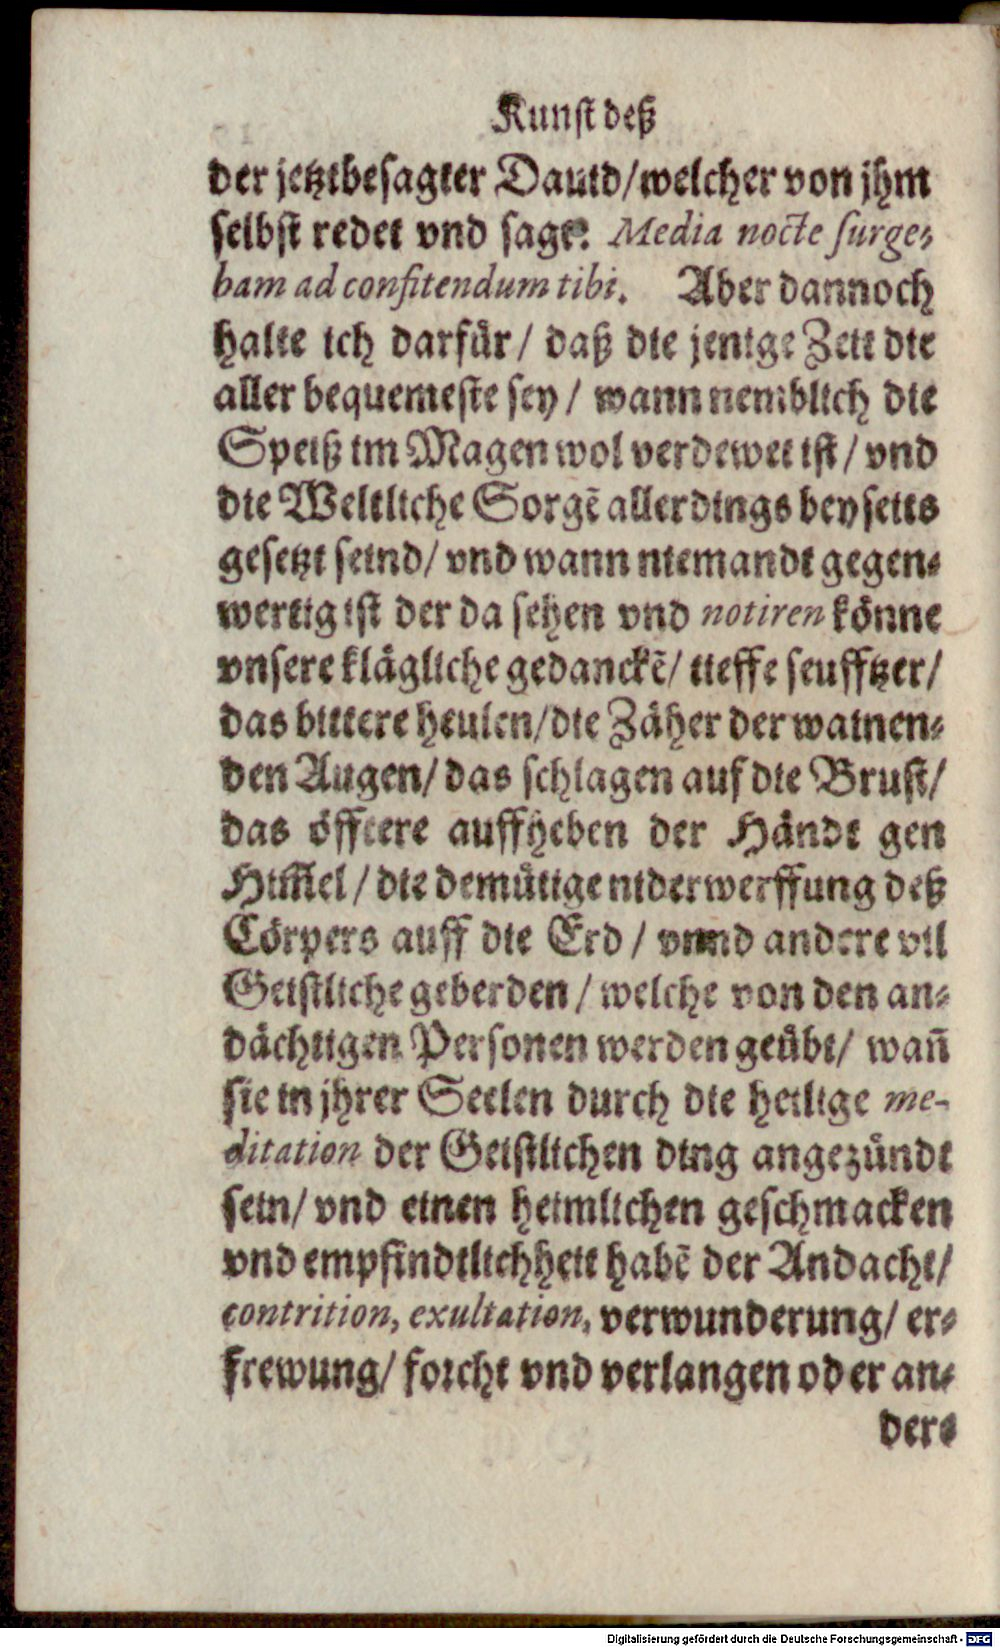 Kunst deß
der jetztbesagter Dauid/welcher von jhm
selbst redet vnd sagt. Media nocte surge-
bam ad confitendum tibi. Aber dannoch
halte ich darfür/ daß die jenige Zeit die
aller bequemeste sey/ wann nemblich die
Speiß im Magen wol verdewet ist/ vnd
die Weltliche Sorgē allerdings beyseits
gesetzt seind/ vnd wann niemandt gegen-
wertig ist der da sehen vnd notiren könne
vnsere klägliche gedanckē/ tieffe seufftzer/
das bittere heulen/die Zäher der wainen-
den Augen/ das schlagen auf die Brust/
das öfftere auffheben der Händt gen
Him̄el/ die demütige niderwerffung deß
Cörpers auff die Erd/ vnnd andere vil
Geistliche geberden/ welche von den an-
dächtigen Personen werden geübt/ wañ
sie in jhrer Seelen durch die heilige me-
ditation der Geistlichen ding angezündt
sein/ vnd einen heimlichen geschmacken
vnd empfindtlichheit habē der Andacht/
contrition, exultation, verwunderung/ er-
frewung/ forcht vnd verlangen oder an-
ders
Digitalisierung gefördert durch die Deutsche Forschungsgemeinschaft - DFG